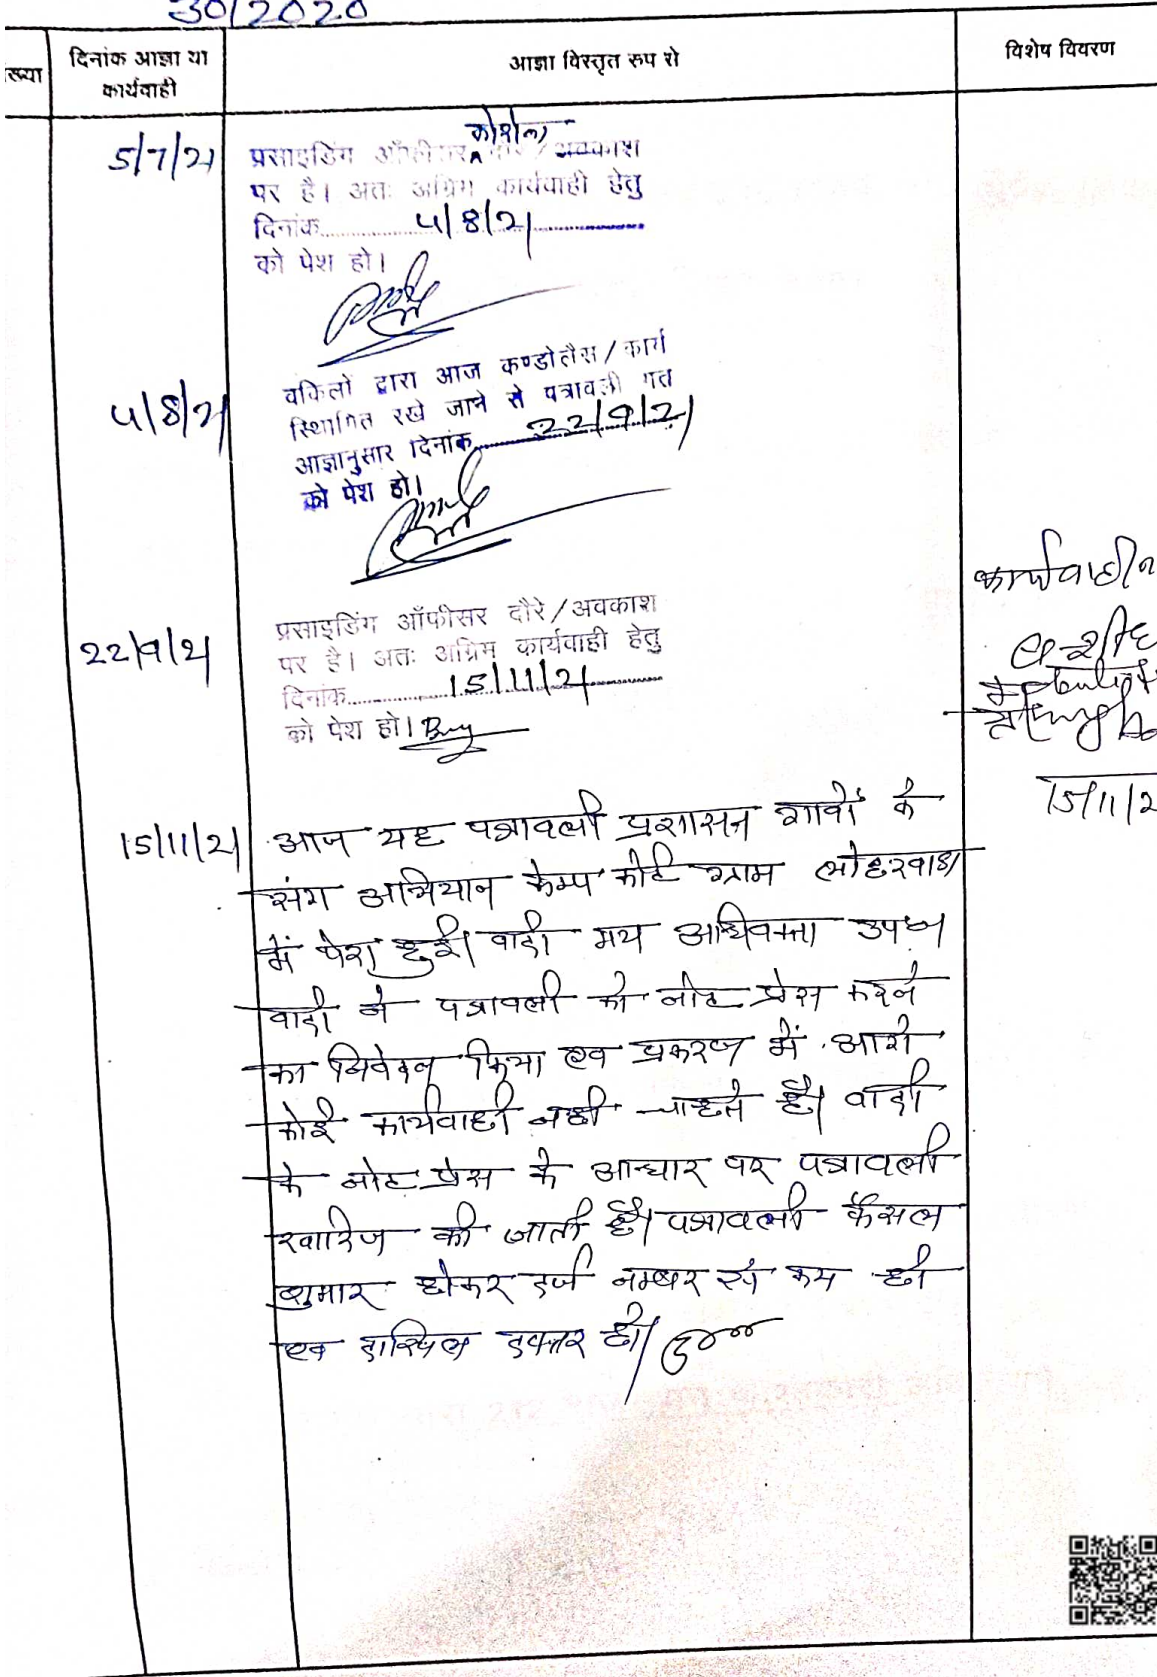 30/2020
ख्या
दिनांक आज्ञा या
कार्यवाही
आज्ञा विस्तृत रुप से
विशेष विवरण
5/7/21
प्रसाइडिंग ऑफीसर दौरे / अवकाश
पर है। अतः अग्रिम कार्यवाही हेतु
दिनांक 4/8/21
को पेश हो।
4/8/21
वकिलों द्वारा आज कण्डोलैंस / कार्य
स्थागित रखे जाने से पत्रावली गत
आज्ञानुसार दिनांक 22/9/21
को पेश हो।
22/9/21
प्रसाइडिंग ऑफीसर दौरे / अवकाश
पर है। अतः अग्रिम कार्यवाही हेतु
दिनांक 15/11/21
को पेश हो।
कार्यवाही
15/11/2
15/11/21
आज यह पत्रावली प्रशासन गावों के
संग अभियान केम्प कोर्ट ग्राम लोहरवाडा
में पेश हुई। वादी मय अधिवक्ता उप०
वादी ने पत्रावली को नोट प्रेस करने
का निवेदन किया एव प्रकरण में आगे
कोई कार्यवाही नही चाहते है। वादी
के नोट प्रेस के आधार पर पत्रावली
खारिज की जाती है। पत्रावली फैसल
शुमार होकर दर्ज नम्बर से कम हो
एव दाखिल दफ्तर हो।